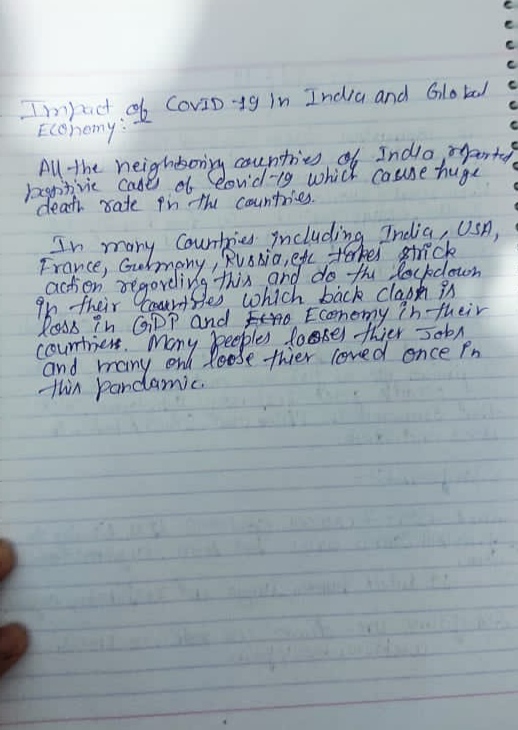 Impact of COVID-19 in India and Global
Economy:-
All the neighboring countries of India reported
positive cases of covid-19 which cause huge
death rate in the countries.
In many Countries including India, USA,
France, Germany, Russia, etc takes strick
action regarding this and do the lockdown
in their countries which back clash is
loss in GDP and Economy in their
countries. Many peoples looses thier Jobs
and many one loose thier loved once in
this pandamic.